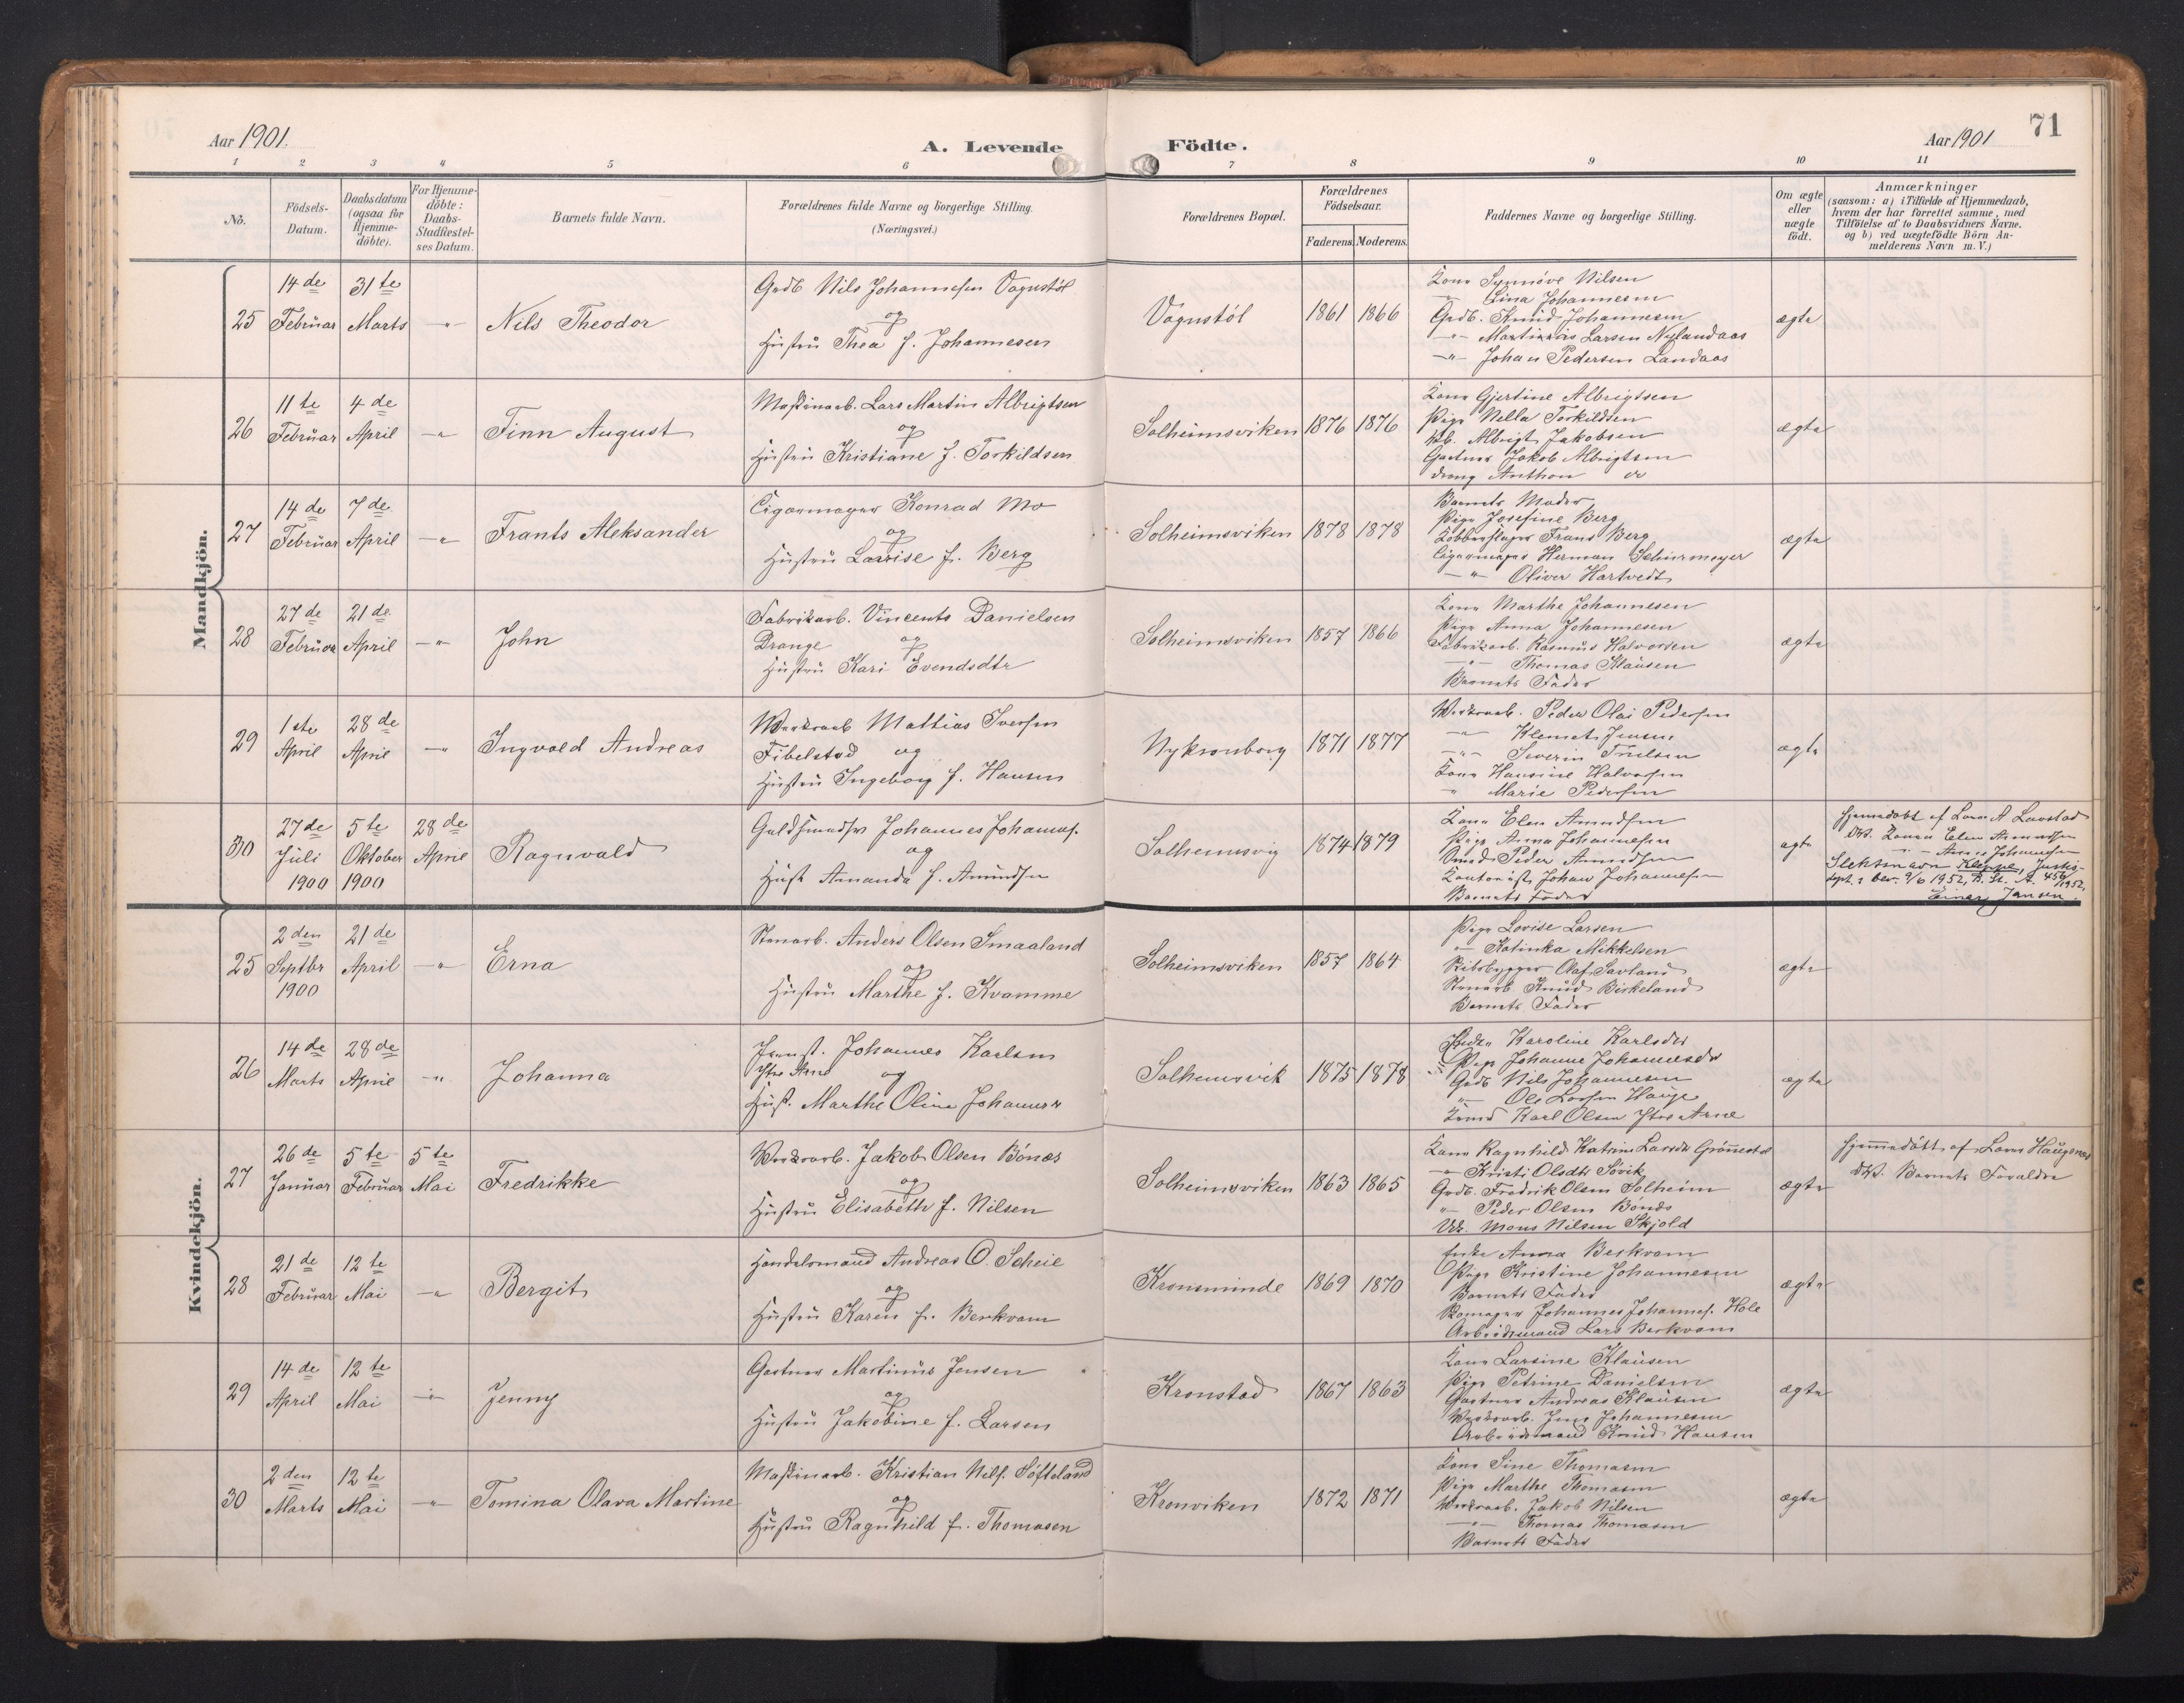 Aar 1901.
A. Levende Födte.
Aar 1901
71
1 2 3 4 5 6 7 8 9 10 11
No.
Födsels-
Datum.
Daabsdatum
(ogsaa for
Hjemme-
döbte).
For Hjemme-
döbte:
Daabs-
Stadfæstel-
ses Datum.
Barnets fulde Navn.
Forældrenes fulde Navne og borgerlige Stilling.
(Næringsvei.)
Forældrenes Bopæl.
Forældrenes
Födselsaar.
Faderens. Moderens.
Faddernes Navne og borgerlige Stilling.
Om ægte
eller
uægte
födt.
Anmærkninger
(saasom: a) i Tilfælde af Hjemmedaab,
hvem der har forrettet samme, med
Tilföielse af to Daabsvidners Navne,
og b) ved uægtefödte Börn An-
melderens Navn m. V.)
Mandkjön.
25
14de
Februar
31te
Marts
-"-
Nils Theodor
Grdb Nils Johannesen Vognstöl
og
Hustru Thea f. Johannesen
Vognstöl
1861 1866
Kone Synnöve Nilsen
-"- Lina Johannesen
Grdb. Knud Johannesen
-"- Martinius Larsen Nylandaas
-"- Johan Pedersen Landaas
ægte
26
11te
Februar
4de
April
-"-
Finn August
Maskinarb. Lars Martin Albrigtsen
og
Hustru Kristiane f. Torkildsen
Solheimsviken
1876 1876
Kone Gjertine Albrigtsen
Pige Nella Torkildsen
Albrigt Jakobsen
Gartner Jakob Albrigtsen
dreng Anthon do
ægte
27
14de
Februar
7de
April
-"-
Frants Aleksander
Cigarmager Konrad Mo
og
Hustru Lovise f. Berg
Solheimsviken
1878 1878
Barnets Moder
Pige Josefine Berg
Kobberslager Frans Berg
Cigarmager Herman Schurmeyer
-"- Oliver Hartvedt
ægte
28
27de
Februar
21de
April
-"-
John
Fabrikarb. Vincents Danielsen
Drange og
Hustru Kari Evendsdtr
Solheimsviken
1857 1866
Kone Marthe Johannesen
Pige Anna Johannesen
Fabrikarb. Rasmus Halvorsen
-"- Thomas Klausen
Barnets Fader
ægte
29
1ste
April
28de
April
-"-
Ingvald Andreas
Werksarb Mathias Iversen
Fibelstad og
Hustru Ingeborg f. Hansen
Nykronborg
1871 1877
Werksarb. Peder Olai Pedersen
-"- Klemet Jensen
-"- Severin
Kone Hansine Halvorsen
-"- Marie Pedersen
ægte
30
27de
Juli
1900
5te
Oktober
1900
28de
April
Ragnvald
Guldsmedsv Johannes Johannes.
og
Hust Amanda f. Amundsen
Solheimsvig
1874 1879
Kone Elen Amundsen
Pige Anna Johannesen
Smed Peder Amundsen
Kontorist Johan Johannesen
Barnets Fader
ægte
Hjemmedöbt af Lovstad
Konen Elen Amundsen
-"- Anna Johannesen
Slektsnavn Kleppe, Justis-
dept.s bev. 9/6 1952, 456/1952.
Einar Jansen.
Kvindekjön.
25
2den
Septbr
1900
21de
April
-"-
Erna
Stenarb. Anders Olsen Smaaland
og
Hustru Marthe f. Kvamme
Solheimsviken
1857 1864
Pige Lovise Larsen
-"- Katinka Mikkelsen
Olaf Savland
Stenarb Knud Birkeland
Barnets Fader
ægte
26
14de
Marts
28de
April
-"-
Johanna
Johannes Karlsen
Ytre Arne og
Hust. Marthe Oline Johannes
Solheimsvik
1875 1878
Karoline Karlsdtr
Pige Johanne Johannesdtr
Grdb Nils Johannesen
-"- Ole Larsen Hauge
Karl Olsen Ytre Arne
ægte
27
26de
Januar
5te
Februar
5te
Mai
Fredrikke
Werksarb. Jakob Olsen Bönæs
og
Hustru Elisabeth f. Nilsen
Solheimsviken
1863 1865
Kone Ragnhild Katrine Larsdtr Grönnestad
-"- Kristi Olsdtr Sövik
Grdb. Fredrik Olsen Solheim
-"- Peder Olsen Bönæs
Mons Nilsen Skjold
ægte
Hjemmedöbt af Haugenæs
Barnets Forældre
28
21de
Februar
12te
Mai
-"-
Bergit
Handelsmand Andreas O. Scheie
og
Hustru Karen f. Berkvam
Kronsminde
1869 1870
Enke Anna Berkvam
Pige Kristine Johannesen
Barnets Fader
Johannes Johannes. Hole
Arbeidsmand Lars Berkvam
ægte
29
14de
April
12te
Mai
-"-
Jenny
Gartner Martinus Jensen
og
Hustru Jakobine f. Larsen
Kronstad
1867 1863
Kone Larsine Klausen
Pige Petrine Danielsen
Gartner Andreas Klausen
Werksarb. Jens Johannesen
Arbeidsmand Knud Hansen
ægte
30
2den
Marts
12te
Mai
-"-
Tomina Olava Martine
Maskinarb. Kristian Nils. Söfteland
og
Hustru Ragnhild f. Thomasen
Kronviken
1872 1871
Kone Sine Thomasen
Pige Marthe Thomasen
Werksarb. Jakob Nilsen
-"- Thomas Thomasen
Barnets Fader
ægte